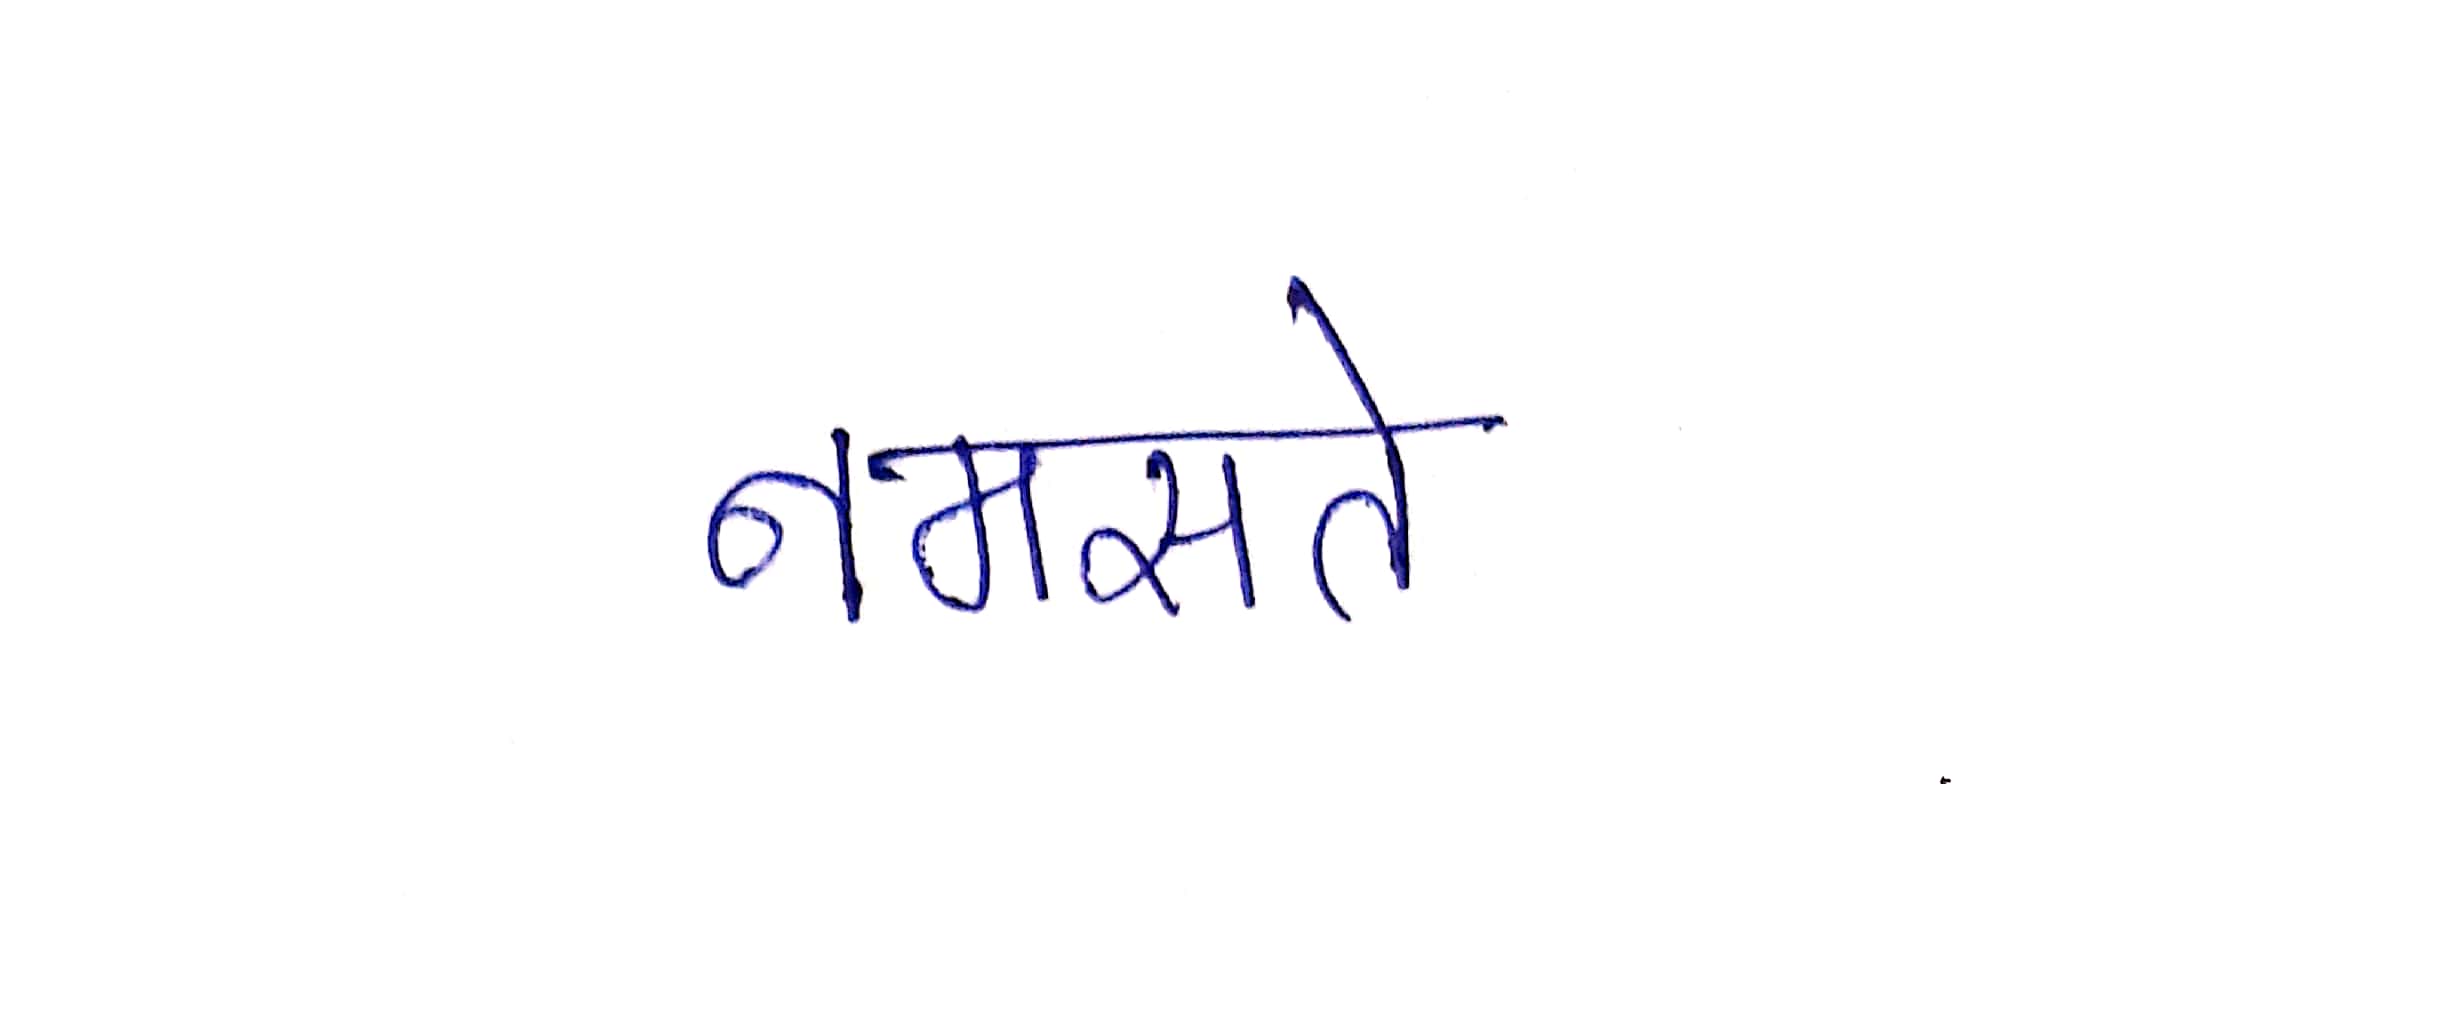 नमसते